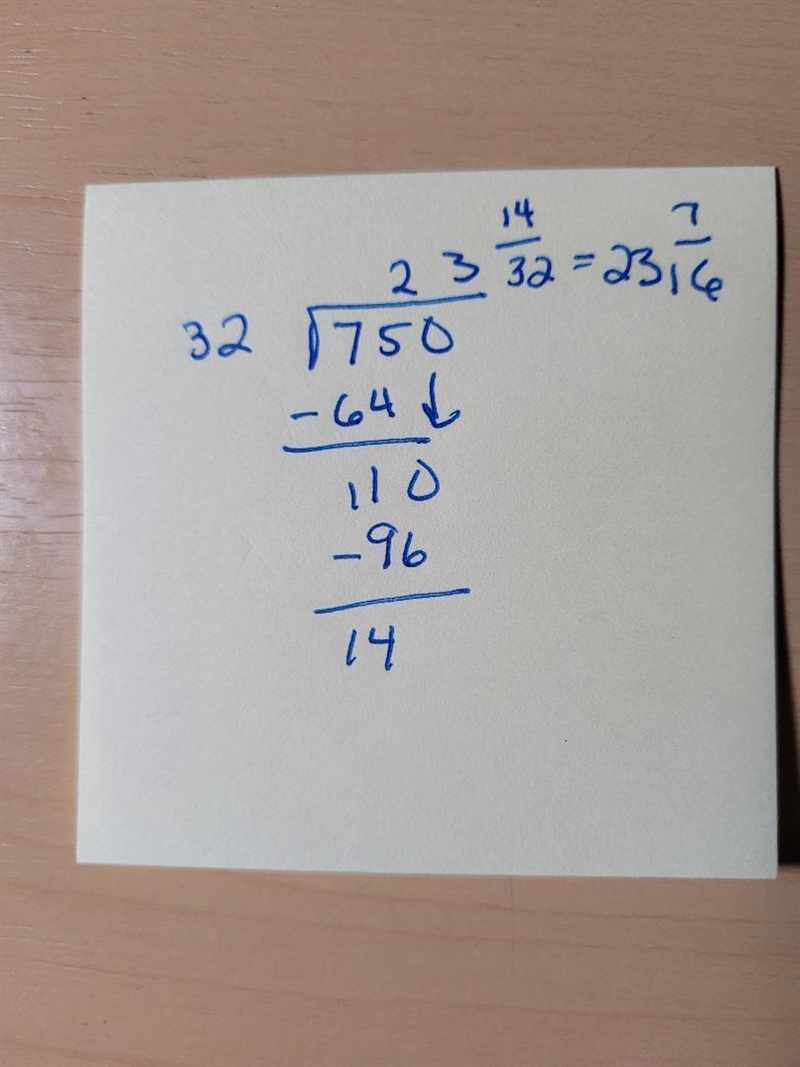 2 3 14/32 = 23 7/16
32 √750
-64 ↓
110
-96
14